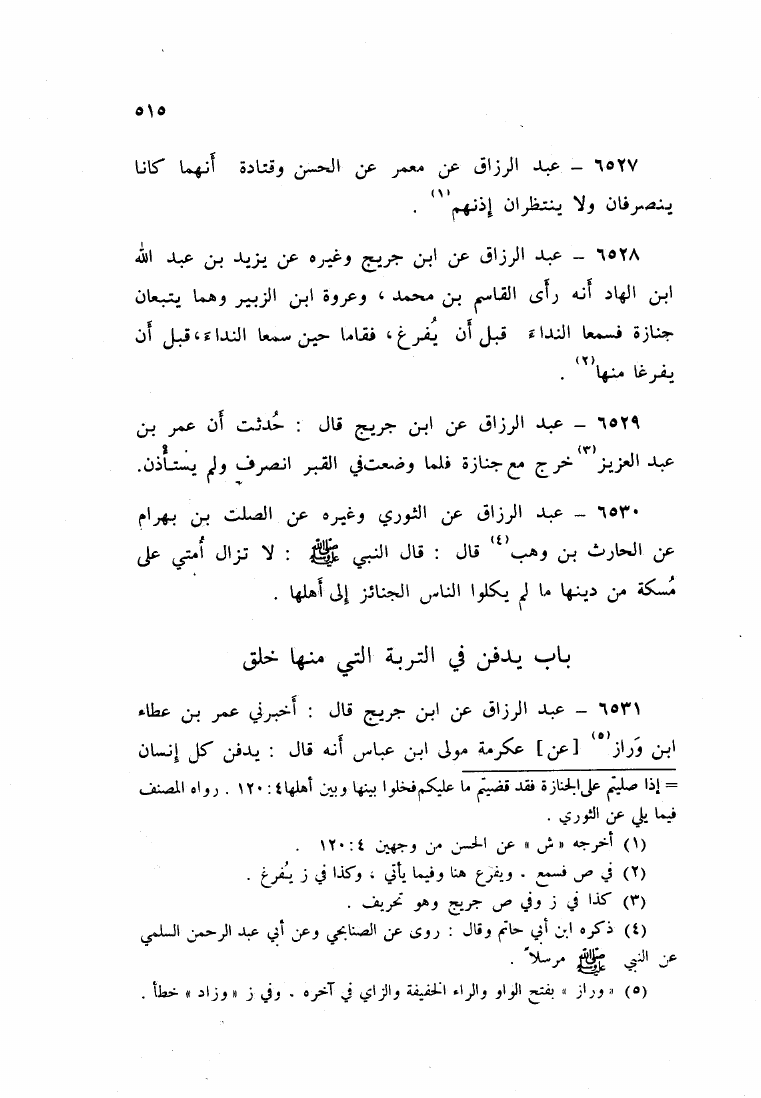 ٥١٥
٦٥٢٧ – عبد الرزاق عن معمر عن الحسن وقتادة أنهما كانا
ينصرفان ولا ينتظران إذنهم(١) .
٦٥٢٨ – عبد الرزاق عن ابن جريج وغيره عن يزيد بن عبد الله
ابن الهاد أنه رأى القاسم بن محمد ، وعروة ابن الزبير وهما يتبعان
جنازة فسمعا النداء قبل أن يُفرغ ، فقاما حين سمعا النداء،قبل أن
يفرغا منها(٢) .
٦٥٢٩ – عبد الرزاق عن ابن جريج قال : حُدثت أن عمر بن
عبد العزيز(٣) خرج مع جنازة فلما وضعت في القبر انصرف ولم يستأذن.
٦٥٣٠ – عبد الرزاق عن الثوري وغيره عن الصلت بن بهرام
عن الحارث بن وهب(٤) قال : قال النبي ﷺ : لا تزال أمتي على
مُسكة من دينها ما لم يكلوا الناس الجنائز إلى أهلها .
باب يدفن في التربة التي منها خلق
٦٥٣١ – عبد الرزاق عن ابن جريج قال : أخبرني عمر بن عطاء
ابن وَراز(٥) [عن] عكرمة مولى ابن عباس أنه قال : يدفن كل إنسان
= إذا صليتم على الجنازة فقد قضيتم ما عليكم فخلوا بينها وبين أهلها ٤:١٢٠ . رواه المصنف
فيما يلي عن الثوري .
(١) أخرجه « ش » عن الحسن من وجهين ٤:١٢٠ .
(٢) في ص فسمع . ويفزع هنا وفيما يأتي ، وكذا في ز يُفرغ .
(٣) كذا في ز وفي ص جريج وهو تحريف .
(٤) ذكره ابن أبي حاتم وقال : روى عن الصنابحي وعن أبي عبد الرحمن السلمي
عن النبي ﷺ مرسلاً .
(٥) « وراز » بفتح الواو والراء الخفيفة والزاي في آخره . وفي ز « وزاد » خطأ .